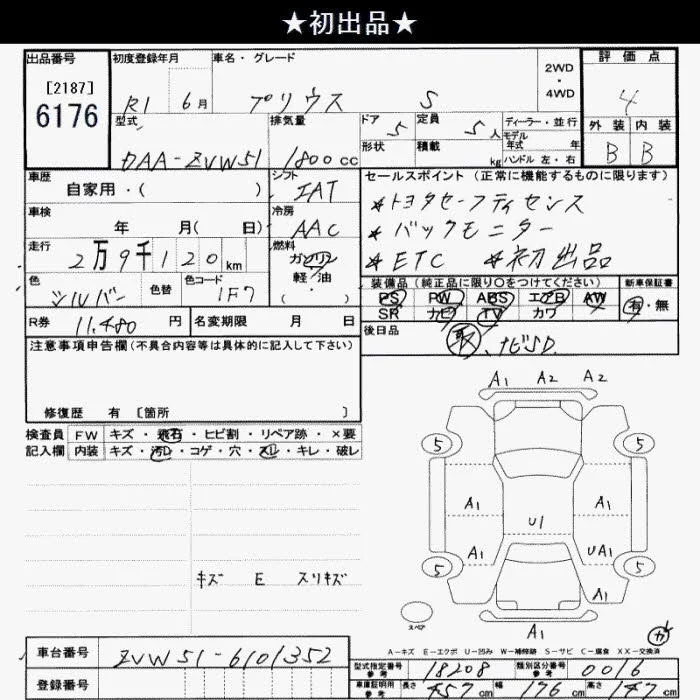 ★初出品★
出品番号 初度登録年月 車名・グレード 2WD・4WD 評価点
[2187] 6176 R1 6月 プリウス S 4
型式 排気量 ドア 5 定員 5人 ディーラー・並行 外装 内装
モデル年式 年
DAA-ZVW51 1800cc 形状 積載 kg ハンドル 左・右 B B
車歴 シフト セールスポイント(正常に機能するものに限ります)
自家用・( ) IAT ★トヨタセーフティセンス
車検 冷房 ★バックモニター
年 月( 日) AAC ★ETC ★初出品
走行 燃料
2万9千120km ガソリン
軽・油
( )
色 色替 色コード 装備品(純正品に限り○をつけてください) 新車保証書
シルバー 1F7 PS PW ABS エアB AW 有・無
SR ナビ TV カワ
R券 11,480円 名変期限 月 日 後日品
取、ナビSD.
注意事項申告欄(不具合内容等は具体的に記入して下さい)
修復歴 有 [箇所 ]
検査員 FW キズ・飛石・ヒビ割・リペア跡・×要
記入欄 内装 キズ・汚レ・コゲ・穴・スレ・キレ・破レ
A1 A2 A2
5 5
A1 A1
U1
A1 UA1
5 5
A1
キズ E スリキズ
スペア
A1
A-キズ E-エクボ U-凹み W-補修跡 S-サビ C-腐食 XX-交換済
車台番号 ZVW51-6101352
型式指定番号 参考 18208 類別区分番号 参考 0016
登録番号
車庫証明用 参考 長さ 457cm 幅 176cm 高さ 147cm